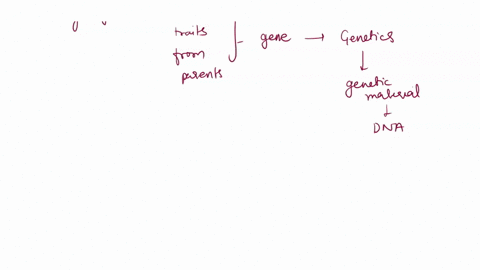 traits
from
parents
gene → Genetics
genetic
material
DNA